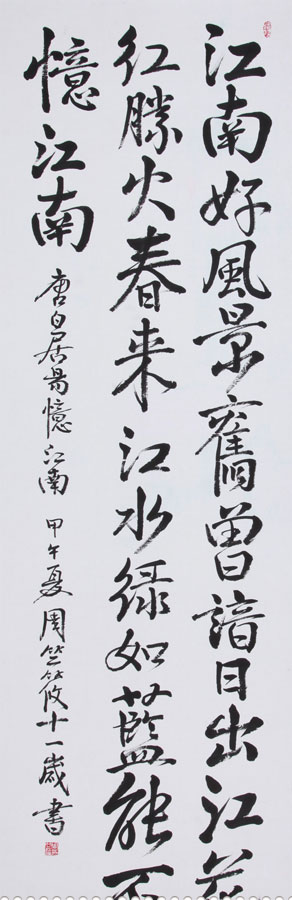 江南好風景舊曾諳日出江花
红勝火春来江水绿如藍能不
憶江南 唐白居易憶江南 甲午夏周竺筱十一歲書